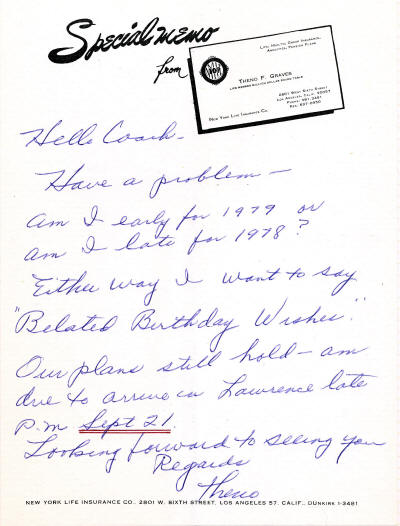 Special memo
from
Life, Health, Group Insurance,
Annuities, Pension Plans
Theno F. Graves
Life Member Million Dollar Round Table
2801 West Sixth Street
Los Angeles, Calif. 90057
New York Life Insurance Co.
Hello Coach-
Have a problem -
am I early for 1979 or
am I late for 1978?
Either way I want to say
"Belated Birthday Wishes."
Our plans still hold - am
due to arrive in Lawrence late
p.m Sept 21
Looking forward to seeing you
Regards
Theno
NEW YORK LIFE INSURANCE CO., 2801 W. SIXTH STREET, LOS ANGELES 57, CALIF., DUNKIRK 1-3481